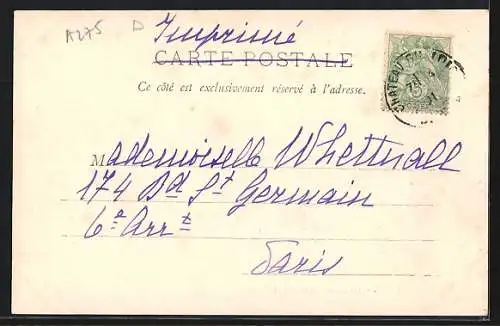 A275 D
Imprimé
CARTE POSTALE
Ce côté est exclusivement réservé à l'adresse.
Mademoiselle Whettnall
174 Bd St Germain
6e Arrt
Paris
CHATEAU DU LOIR